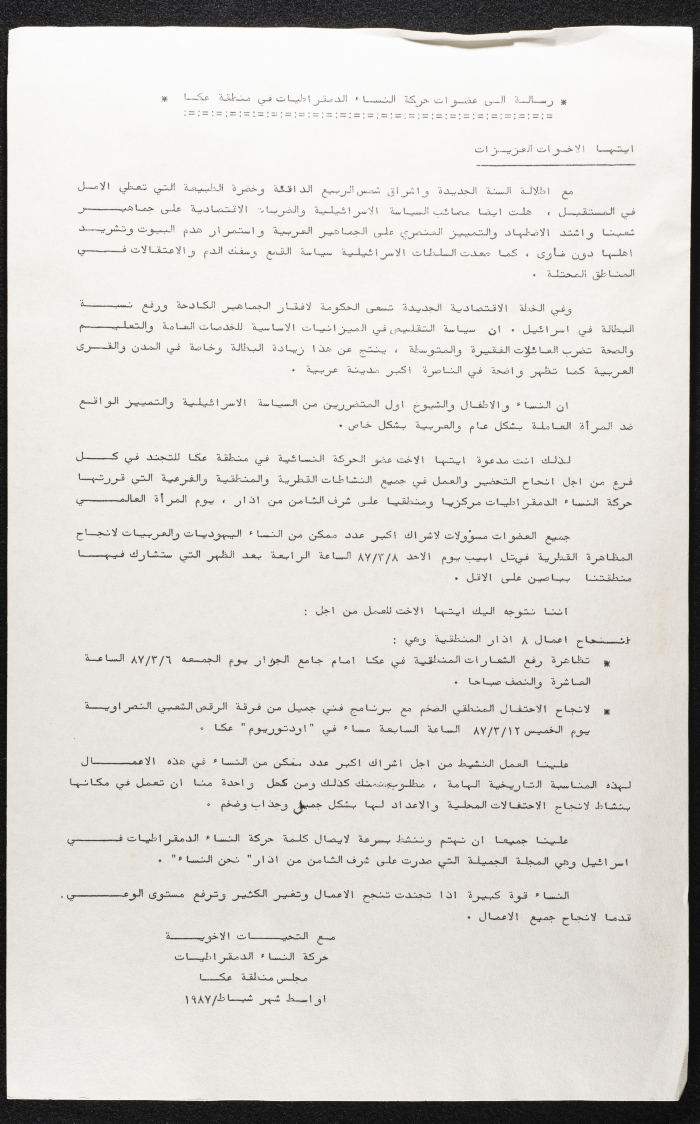 * رسالة الى عضوات حركة النساء الدمقراطيات في منطقة عكا *
ايتها الاخوات العزيزات
مع اطلالة السنة الجديدة واشراق شمس الربيع الدافئة وخضرة الطبيعة التي تعطي الامل
في المستقبل ، هلت ايضا مصائب السياسة الاسرائيلية والضربات الاقتصادية على جماهير
شعبنا واشتد الاضطهاد والتمييز العنصري على الجماهير العربية واستمرار هدم البيوت وتشريد
اهلها دون مأوى ، كما صعدت السلطات الاسرائيلية سياسة القمع وسفك الدم والاعتقالات في
المناطق المحتلة .
وفي الخطة الاقتصادية الجديدة تسعى الحكومة لافقار الجماهير الكادحة ورفع نسبة
البطالة في اسرائيل . ان سياسة التقليص في الميزانيات الاساسية للخدمات العامة والتعليم
والصحة تضرب العائلات الفقيرة والمتوسطة ، ينتج عن هذا زيادة البطالة وخاصة في المدن والقرى
العربية كما تظهر واضحة في الناصرة اكبر مدينة عربية .
ان النساء والاطفال والشيوخ اول المتضررين من السياسة الاسرائيلية والتمييز الواقع
ضد المرأة العاملة بشكل عام والعربية بشكل خاص .
لذلك انت مدعوة ايتها الاخت عضو الحركة النسائية في منطقة عكا للتجند في كل
فرع من اجل انجاح التحضير والعمل في جميع النشاطات القطرية والمنطقية والفرعية التي قررتها
حركة النساء الدمقراطيات مركزيا ومنطقيا على شرف الثامن من اذار ، يوم المرأة العالمي
جميع العضوات مسؤولات لاشراك اكبر عدد ممكن من النساء اليهوديات والعربيات لانجاح
المظاهرة القطرية في تل ابيب يوم الاحد ٨٧/٣/٨ الساعة الرابعة بعد الظهر التي ستشارك فيها
منطقتنا بباصين على الاقل .
اننا نتوجه اليك ايتها الاخت للعمل من اجل :
انجاح اعمال ٨ اذار المنطقية وهي :
* تظاهرة رفع الشعارات المنطقية في عكا امام جامع الجزار يوم الجمعه ٨٧/٣/٦ الساعة
العاشرة والنصف صباحا .
* لانجاح الاحتفال المنطقي الضخم مع برنامج فني جميل من فرقة الرقص الشعبي النصراوية
يوم الخميس ٨٧/٣/١٢ الساعة السابعة مساء في "اودتوريوم" عكا .
علينا العمل النشيط من اجل اشراك اكبر عدد ممكن من النساء في هذه الاعمال
لهذه المناسبة التاريخية الهامة ، مطلوب منك كذلك ومن كل واحدة منا ان تعمل في مكانها
بنشاط لانجاح الاحتفالات المحلية والاعداد لها بشكل جميل وجذاب وضخم .
علينا جميعا ان نهتم وننشط بسرعة لايصال كلمة حركة النساء الدمقراطيات في
اسرائيل وهي المجلة الجميلة التي صدرت على شرف الثامن من اذار" نحن النساء" .
النساء قوة كبيرة اذا تجندت تنجح الاعمال وتغير الكثير وترفع مستوى الوعي .
قدما لانجاح جميع الاعمال .
مع التحيات الاخوية
حركة النساء الدمقراطيات
مجلس منطقة عكا
اواسط شهر شباط/١٩٨٧